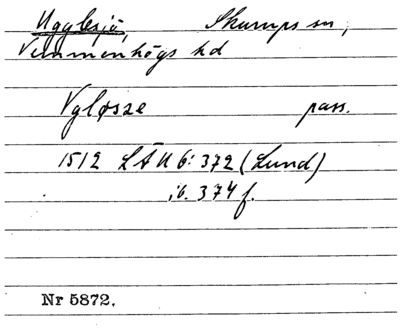 Ugglesjö, Skurups sn,
Vemmenhögs hd
Vgløsze pass.
1512 LÄU 6: 372 (Lund)
ib. 374 f.
Nr 5872.